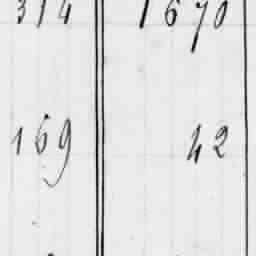 314 1670
169 42